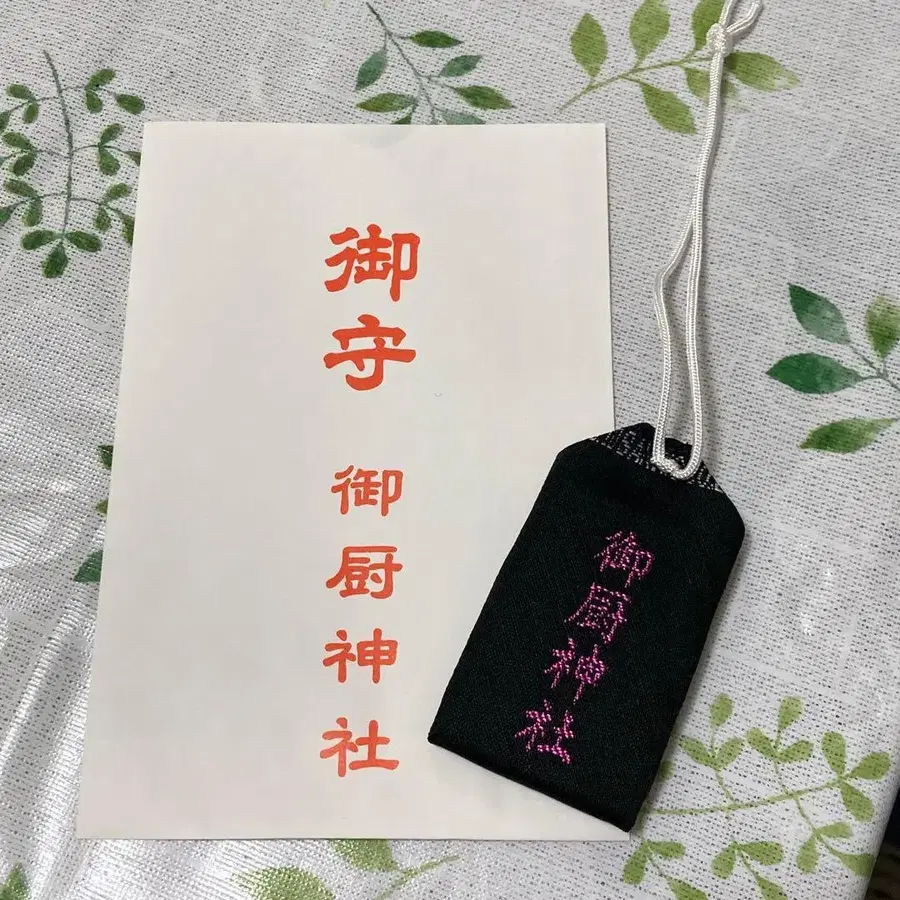 御守
御厨神社
御厨神社